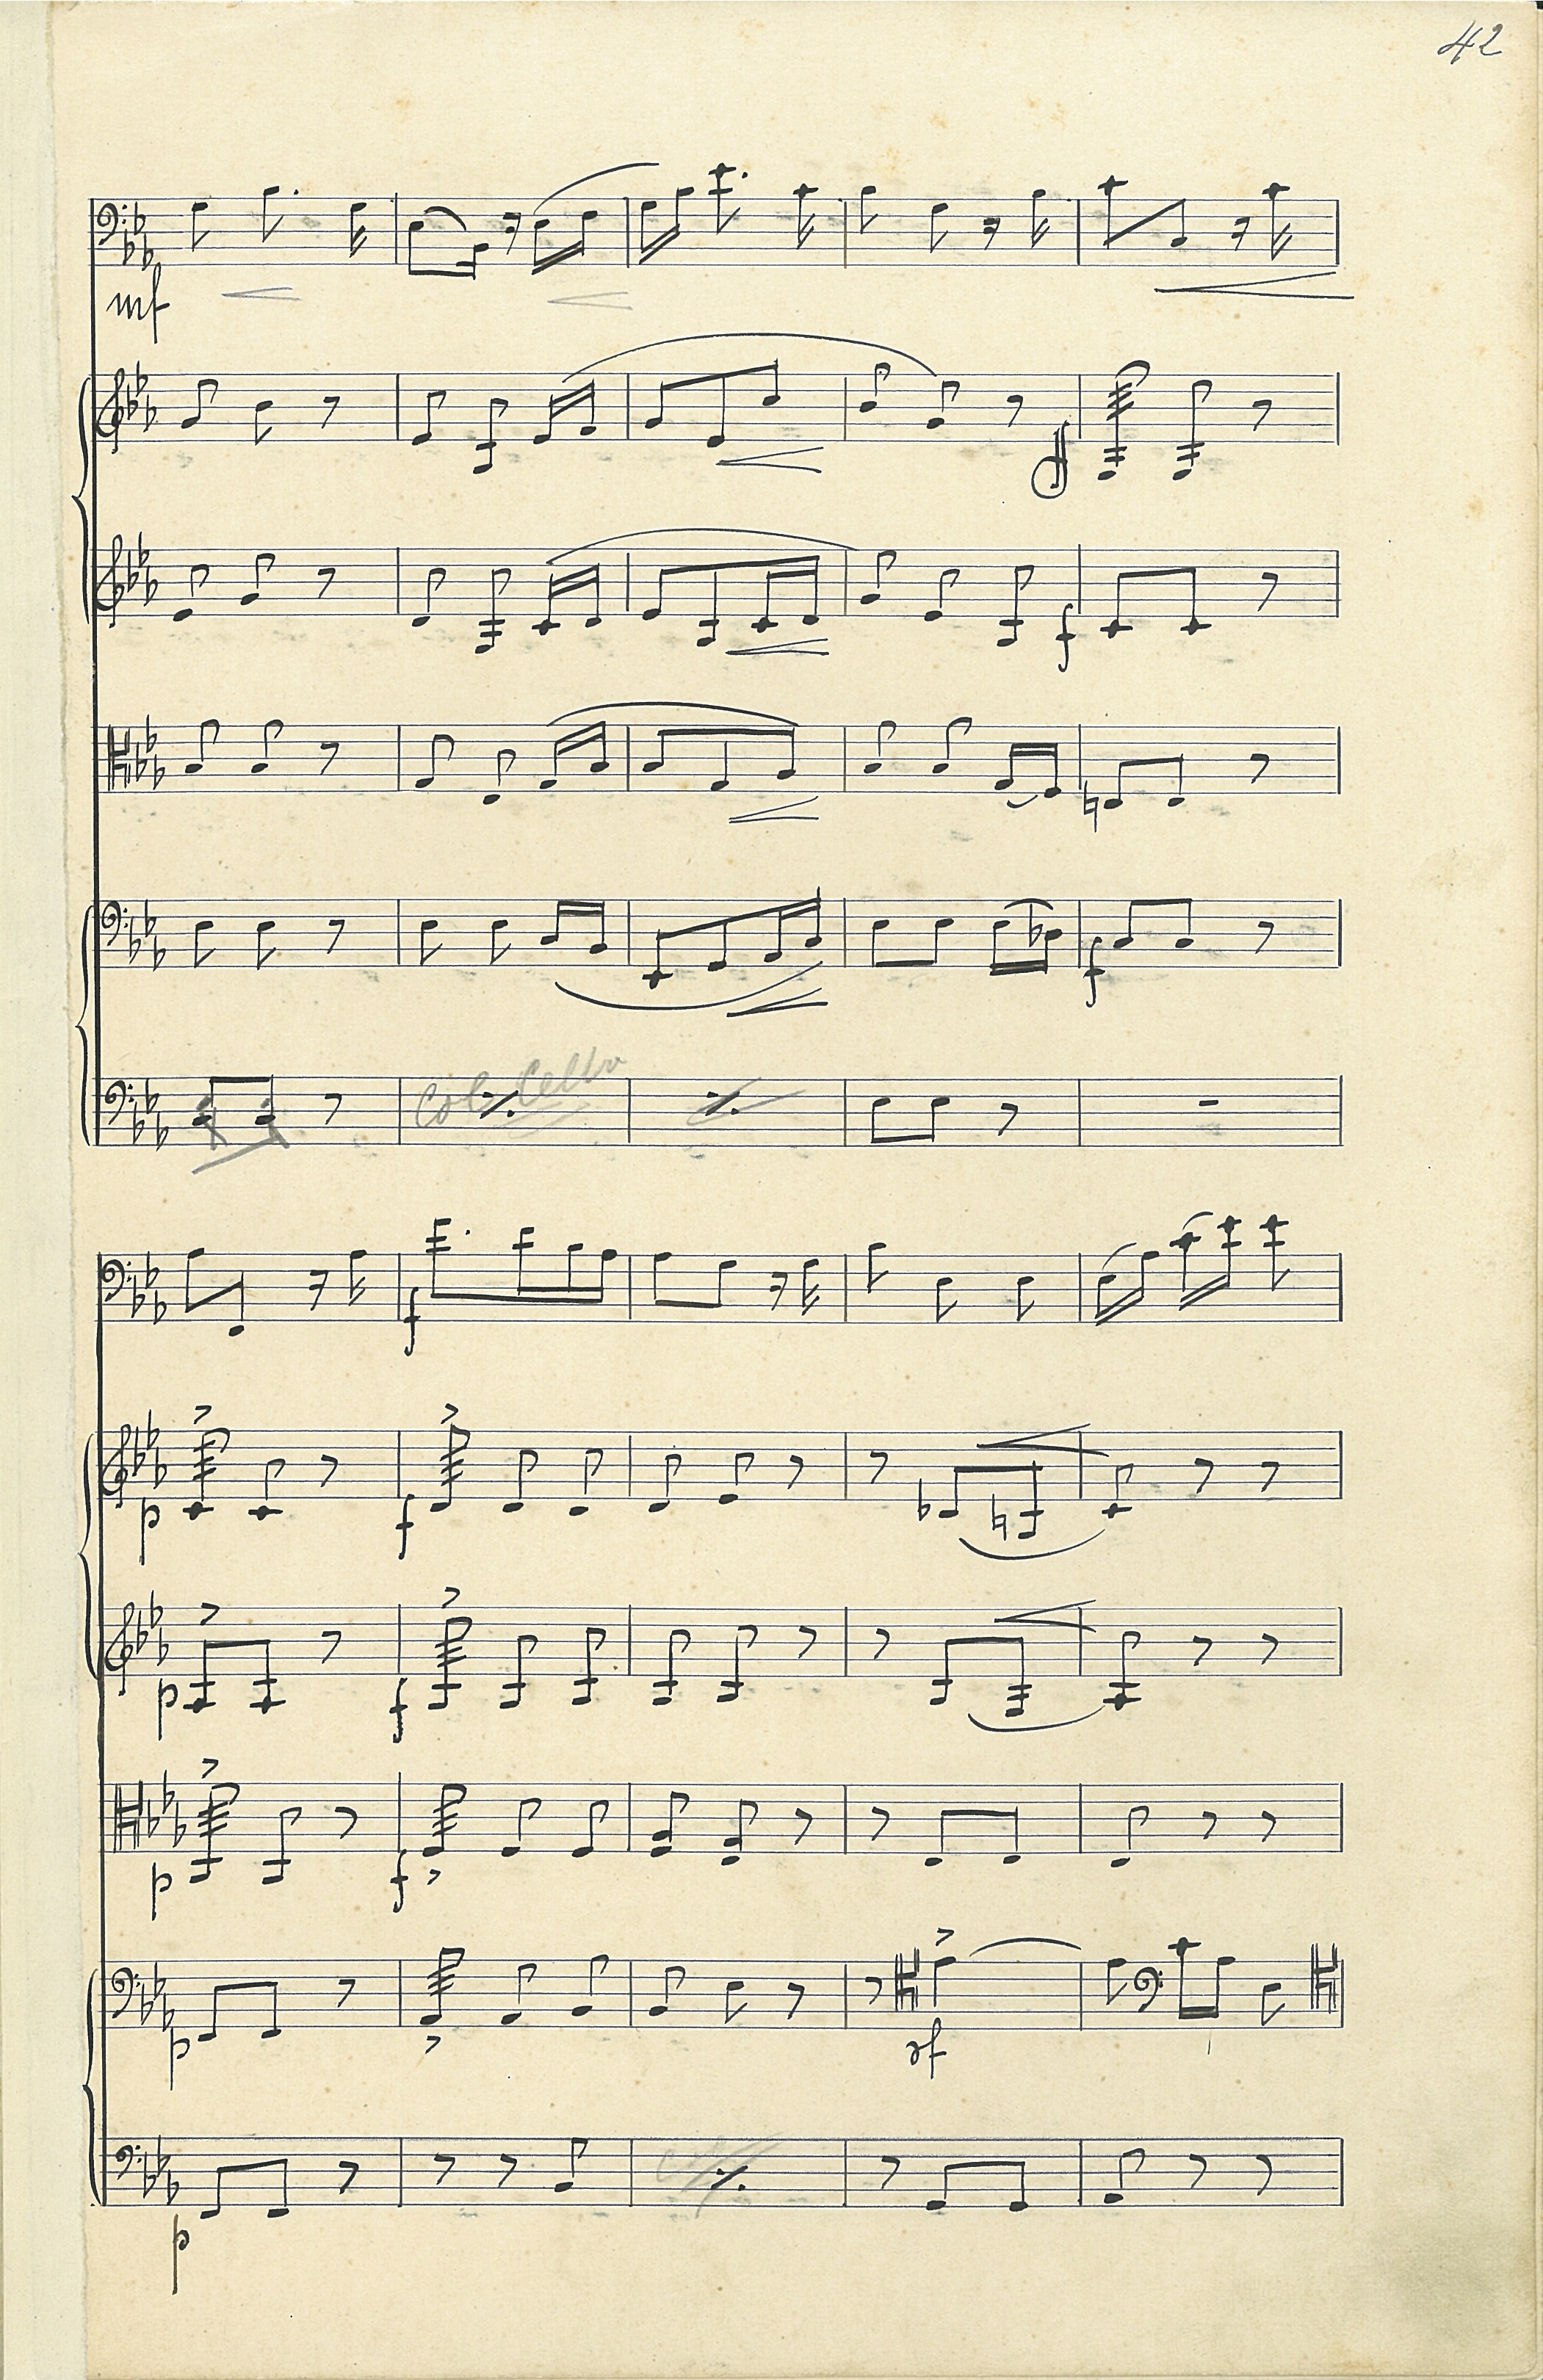 42
mf
f
f
f
Col Cello
f
p
f
p
f
p
f
p
sf
p